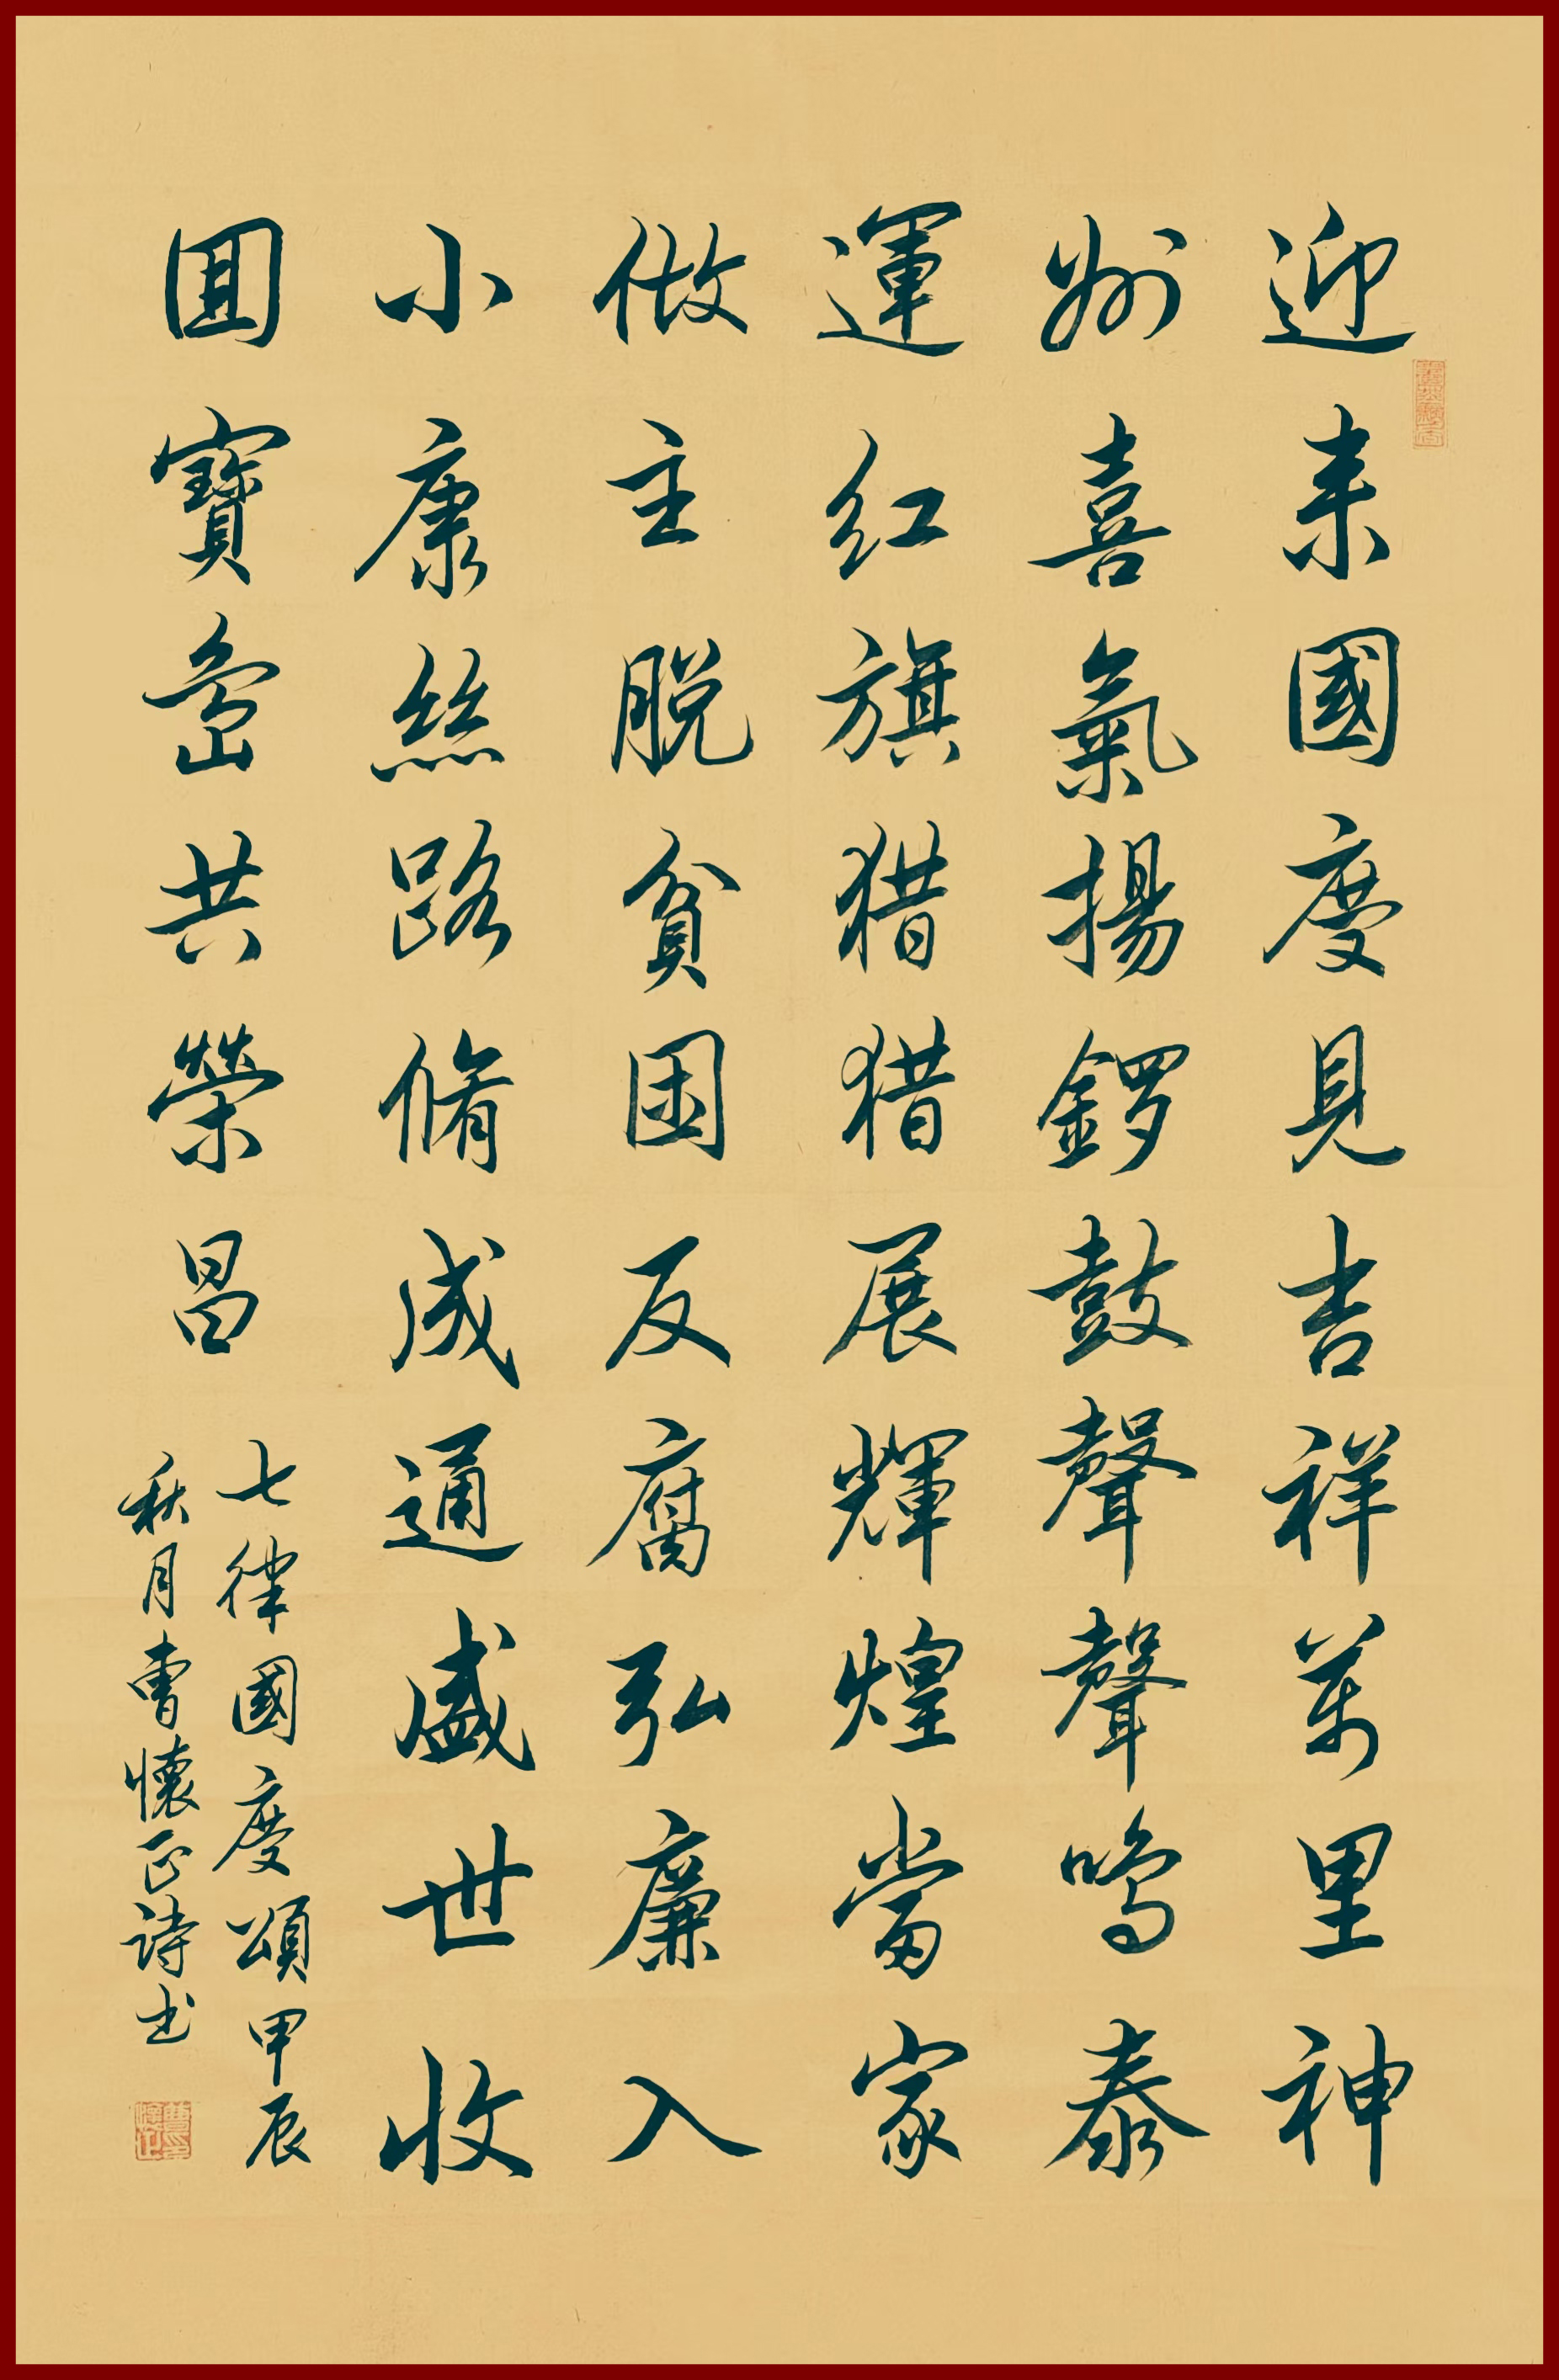 迎来國慶見吉祥萬里神
州喜氣揚鑼鼓聲聲鳴泰
運红旗猎猎展輝煌當家
做主脱貧困反腐弘廉入
小康絲路脩成通盛世收
圓寶島共榮昌
七律國慶頌甲辰
秋月曹懷正詩书